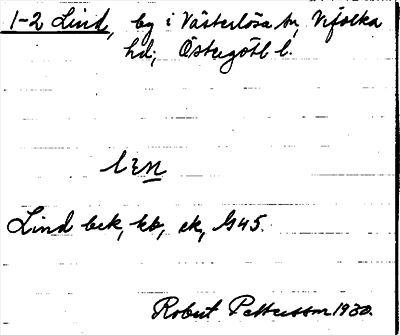 1-2 Lind, by i Västerlösa sn, Vifolka
hd; Östergötl l.
Lind bek, kb, ek, G45.
Robert Pettersson 1930.